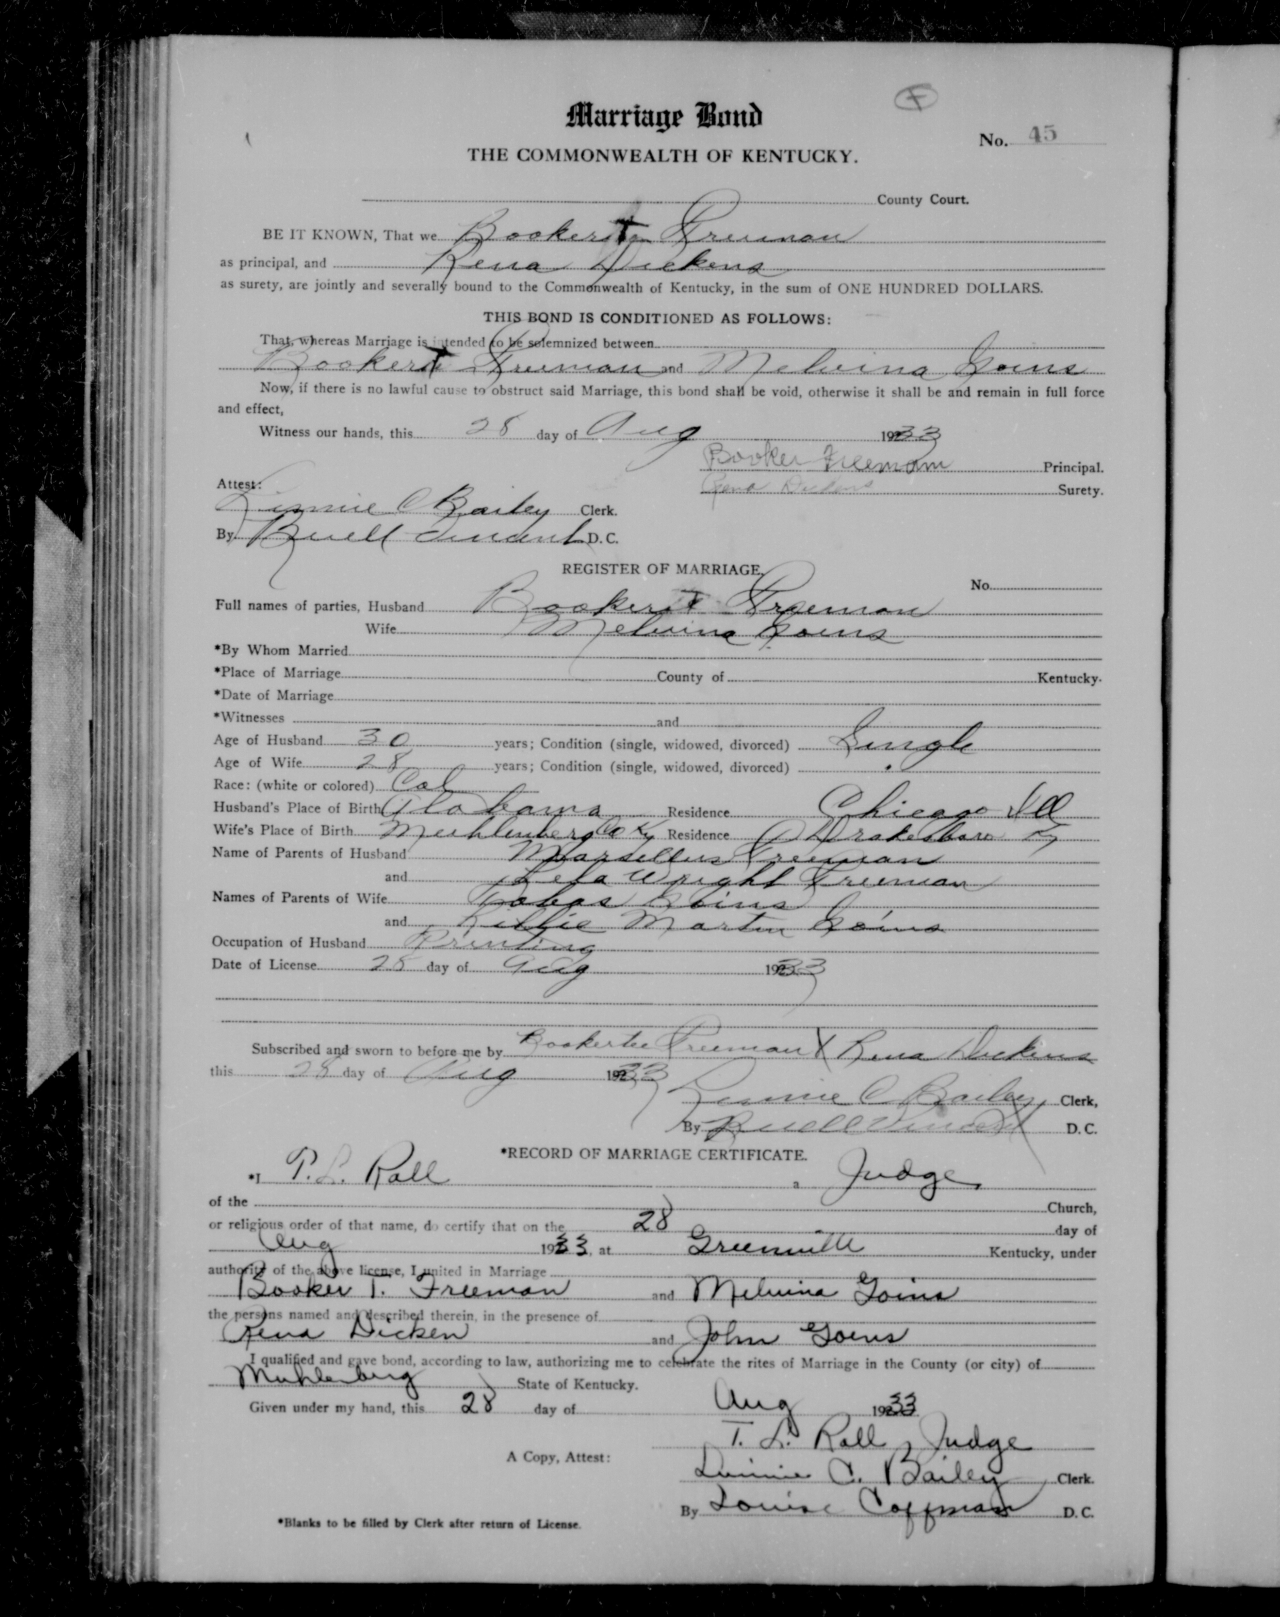 F
Marriage Bond
No. 45
THE COMMONWEALTH OF KENTUCKY.
County Court.
BE IT KNOWN, That we Booker T Freeman
as principal, and Rena Dickens
as surety, are jointly and severally bound to the Commonwealth of Kentucky, in the sum of ONE HUNDRED DOLLARS.
THIS BOND IS CONDITIONED AS FOLLOWS:
That, whereas Marriage is intended to be solemnized between
Booker T Freeman and Melvina Goins
Now, if there is no lawful cause to obstruct said Marriage, this bond shall be void, otherwise it shall be and remain in full force
and effect,
Witness our hands, this 28 day of Aug 1933
Booker Freeman Principal.
Rena Dickens Surety.
Attest:
Linnie C Bailey Clerk.
By Buell Vincent D. C.
REGISTER OF MARRIAGE.
No.
Full names of parties, Husband Booker T Freeman
Wife Melvina Goins
*By Whom Married
*Place of Marriage County of Kentucky.
*Date of Marriage
*Witnesses and
Age of Husband 30 years; Condition (single, widowed, divorced) Single
Age of Wife 28 years; Condition (single, widowed, divorced)
Race: (white or colored) Col
Husband's Place of Birth Alabama Residence Chicago Ill
Wife's Place of Birth Muhlenberg Co Ky Residence Drakesboro Ky
Name of Parents of Husband Marsellus Freeman
and Lela Wright Freeman
Names of Parents of Wife Goins
and Lillie Martin Goins
Occupation of Husband Printing
Date of License 28 day of Aug 1933
Subscribed and sworn to before me by Bookertee Freeman X Rena Dickens
this 28 day of Aug 1933
Linnie C Bailey Clerk,
By Buell Vincent D. C.
*RECORD OF MARRIAGE CERTIFICATE.
*I T. L. Roll a Judge
of the Church,
or religious order of that name, do certify that on the 28 day of
Aug 1933, at Greenville Kentucky, under
authority of the above license, I united in Marriage
Booker T. Freeman and Melvina Goins
the persons named and described therein, in the presence of
Rena Dicken and John Goens
I qualified and gave bond, according to law, authorizing me to celebrate the rites of Marriage in the County (or city) of
Muhlenberg State of Kentucky.
Given under my hand, this 28 day of Aug 1933
T. L. Roll, Judge
A Copy, Attest:
Linnie C. Bailey Clerk.
By Louise Coffman D. C.
*Blanks to be filled by Clerk after return of License.